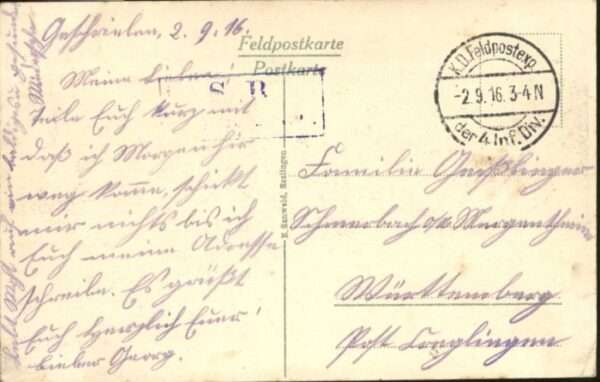 Geschrieben, 2. 9. 16.
Feldpostkarte
Postkarte
Meine Lieben!
S. B.
Teile Euch kurz mit
daß ich Morgen hir
weg komme, schickt
mir nichts bis ich
Euch meine Adresse
schreibe. Es grüßt
Euch herzlich Euer
lieber Georg.
auf baldiges gesundes
Wiedersehn
K.D. Feldpostexp.
-2.9.16. 3-4 N
der 4. Inf. Div.
Reutlingen
Familie Geißlinger
Schmerbach o/a Mergentheim
Württemberg
Post Creglingen